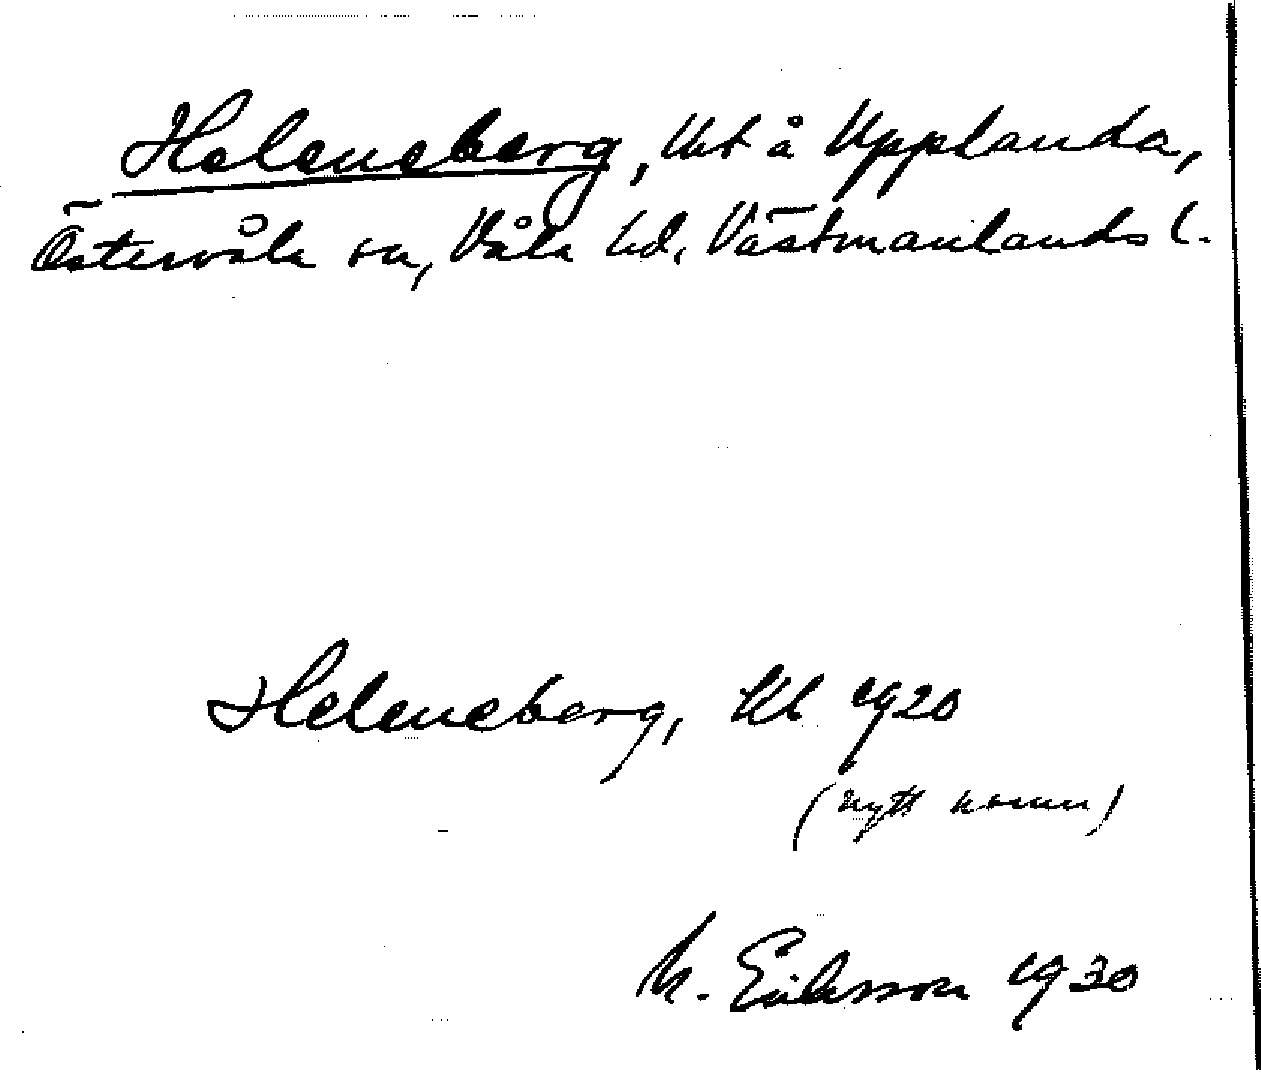 Heleneberg, lht å Upplanda,
Östervåla sn, Våla hd, Västmanlands l.
Heleneberg, Kb 1920
(nytt namn)
M. Eriksson 1930